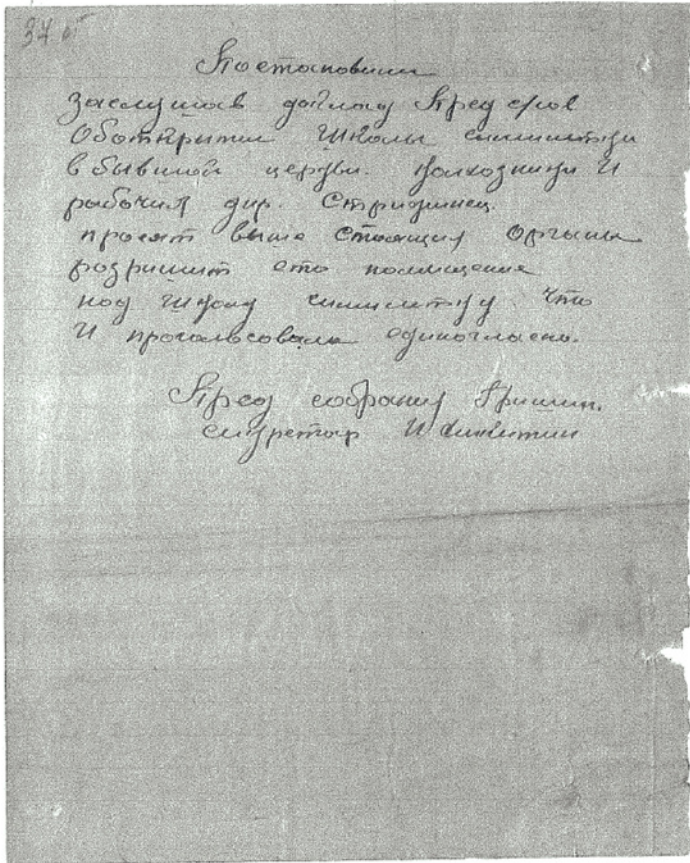 37 об
Постоновили
Заслушав доклад Пред с/сов
Оботкрытии Школы симилетки
в бывшой церкви. Колхозники И
рабочия дир. Стридинец
просят выше стоящия Органы
розришит ето помищение
под Школу симилетку. Что
И проголосовали единогласно.
Пред собрания Гришин.
Сикретар И Никитин